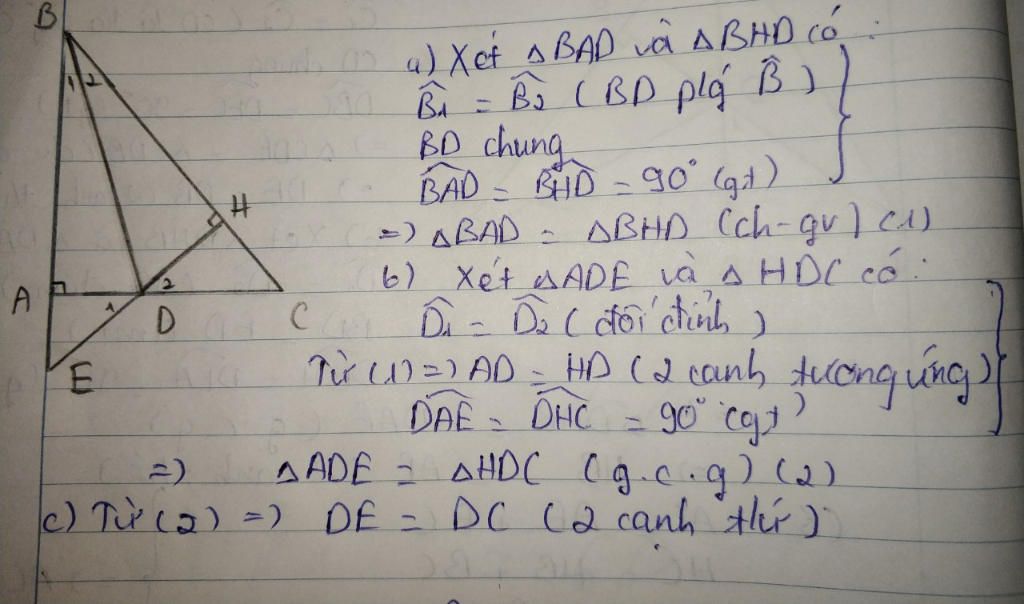 B
1 2
H
A
2
1
D
C
E
a) Xét △BAD và △BHD có :
B̂1 = B̂2 ( BD plgí B̂ )
BD chung
BAD = BHD = 90° (gt)
=> △BAD = △BHD (ch-gv) (1)
b) Xét △ADE và △HDC có :
D̂1 = D̂2 ( đối đỉnh )
Từ (1) => AD = HD ( 2 cạnh tương ứng)
DAE = DHC = 90° (gt)
=> △ADE = △HDC (g.c.g) (2)
c) Từ (2) => DE = DC ( 2 cạnh tứ )